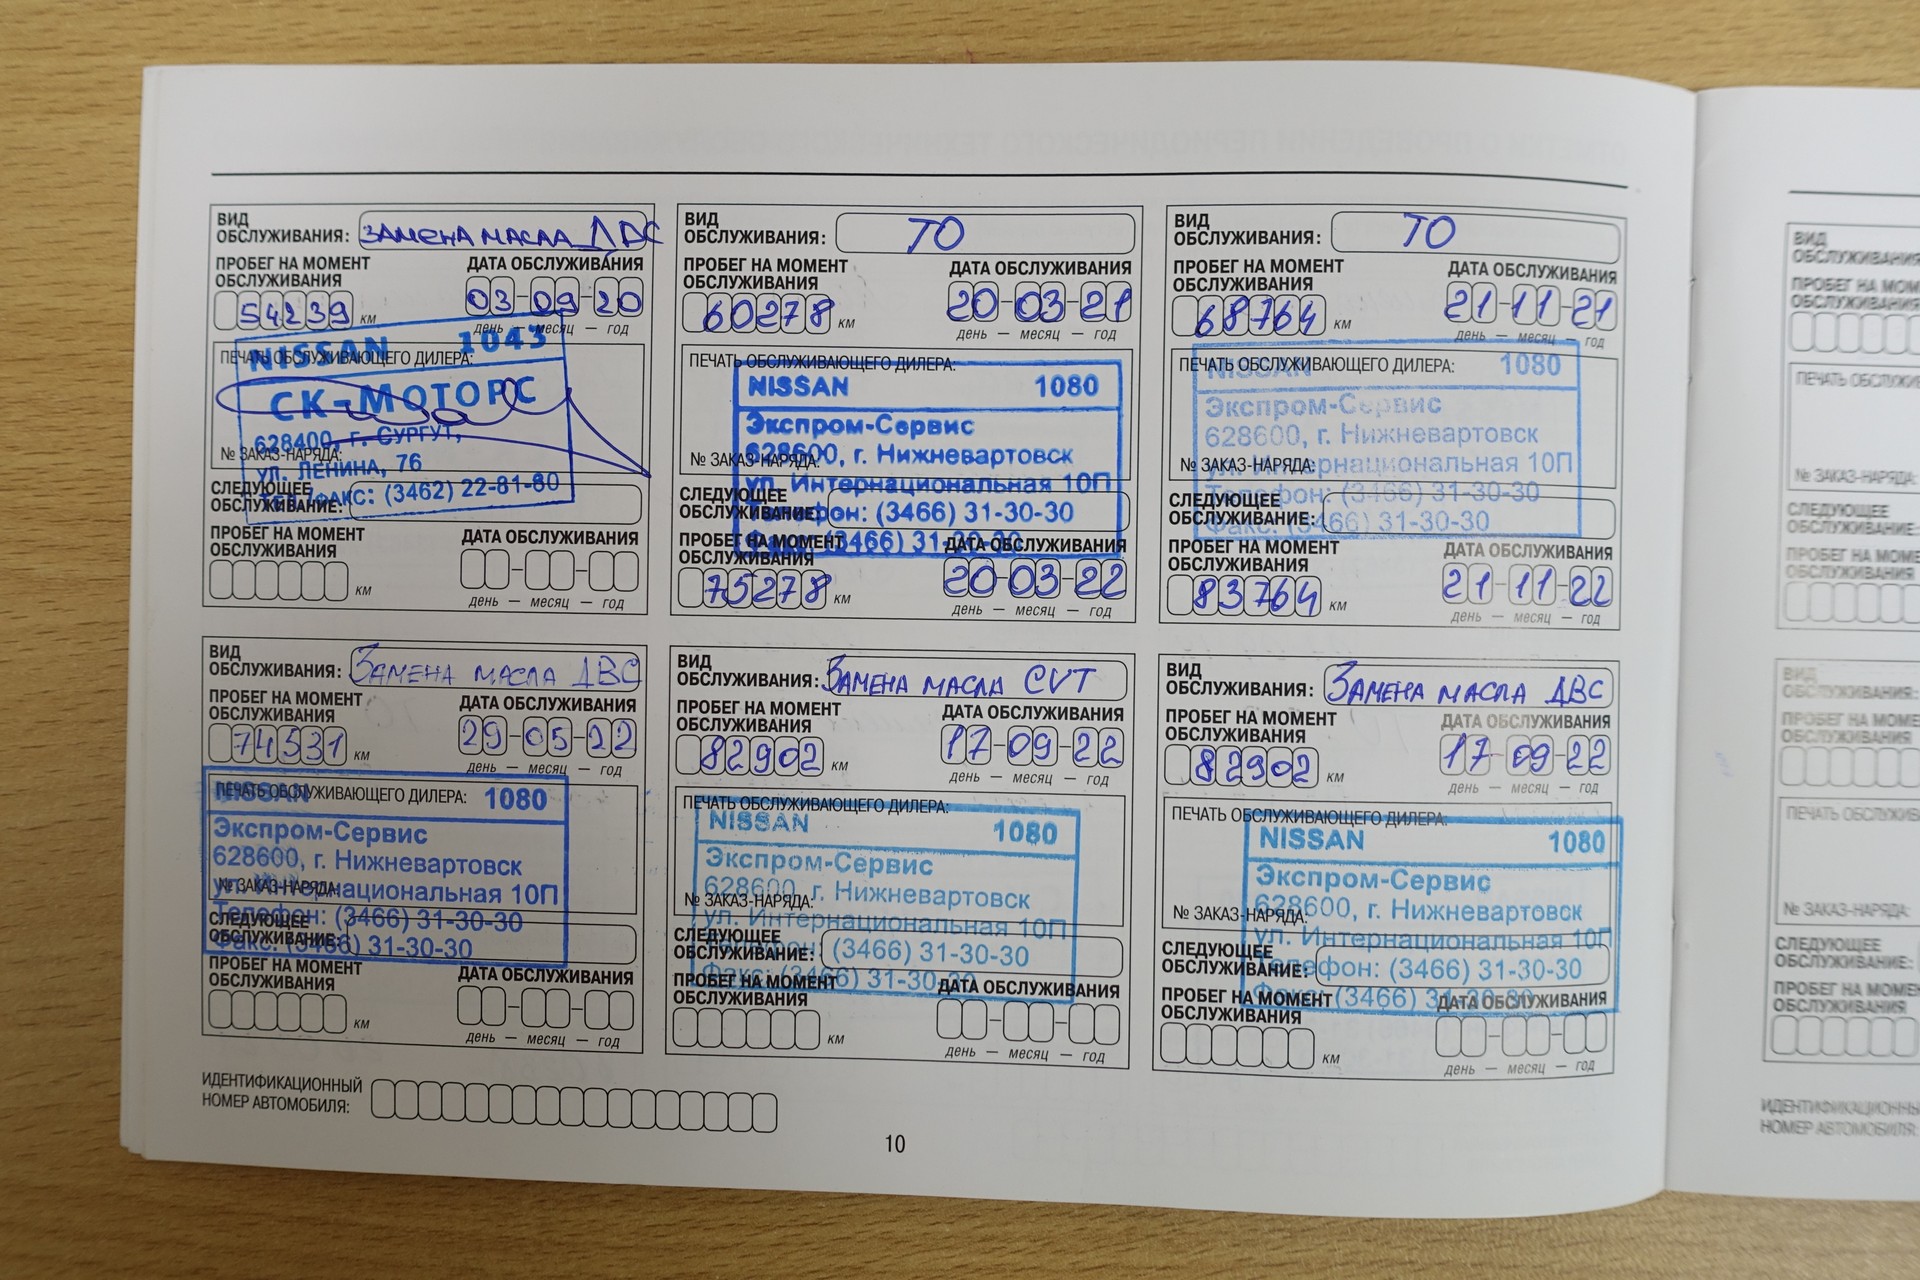 ВИД
ОБСЛУЖИВАНИЯ: ЗАМЕНА МАСЛА ДВС
ПРОБЕГ НА МОМЕНТ
ОБСЛУЖИВАНИЯ
ДАТА ОБСЛУЖИВАНИЯ
54239 км
03-09-20
день — месяц — год
ПЕЧАТЬ ОБСЛУЖИВАЮЩЕГО ДИЛЕРА:
NISSAN 1043
СК-МОТОРС
628400, г. СУРГУТ,
№ ЗАКАЗ-НАРЯДА:
УЛ. ЛЕНИНА, 76
ТЕЛ/ФАКС: (3462) 22-81-80
СЛЕДУЮЩЕЕ
ОБСЛУЖИВАНИЕ:
ПРОБЕГ НА МОМЕНТ
ОБСЛУЖИВАНИЯ
ДАТА ОБСЛУЖИВАНИЯ
км
день — месяц — год
ВИД
ОБСЛУЖИВАНИЯ: ТО
ПРОБЕГ НА МОМЕНТ
ОБСЛУЖИВАНИЯ
ДАТА ОБСЛУЖИВАНИЯ
60278 км
20-03-21
день — месяц — год
ПЕЧАТЬ ОБСЛУЖИВАЮЩЕГО ДИЛЕРА:
NISSAN 1080
Экспром-Сервис
628600, г. Нижневартовск
№ ЗАКАЗ-НАРЯДА:
ул. Интернациональная 10П
Телефон: (3466) 31-30-30
Факс: (3466) 31-30-30
СЛЕДУЮЩЕЕ
ОБСЛУЖИВАНИЕ:
ПРОБЕГ НА МОМЕНТ
ОБСЛУЖИВАНИЯ
ДАТА ОБСЛУЖИВАНИЯ
75278 км
20-03-22
день — месяц — год
ВИД
ОБСЛУЖИВАНИЯ: ТО
ПРОБЕГ НА МОМЕНТ
ОБСЛУЖИВАНИЯ
ДАТА ОБСЛУЖИВАНИЯ
68764 км
21-11-21
день — месяц — год
ПЕЧАТЬ ОБСЛУЖИВАЮЩЕГО ДИЛЕРА:
NISSAN 1080
Экспром-Сервис
628600, г. Нижневартовск
№ ЗАКАЗ-НАРЯДА:
ул. Интернациональная 10П
Телефон: (3466) 31-30-30
Факс: (3466) 31-30-30
СЛЕДУЮЩЕЕ
ОБСЛУЖИВАНИЕ:
ПРОБЕГ НА МОМЕНТ
ОБСЛУЖИВАНИЯ
ДАТА ОБСЛУЖИВАНИЯ
83764 км
21-11-22
день — месяц — год
ВИД
ОБСЛУЖИВАНИЯ: ЗАМЕНА МАСЛА ДВС
ПРОБЕГ НА МОМЕНТ
ОБСЛУЖИВАНИЯ
ДАТА ОБСЛУЖИВАНИЯ
74531 км
29-05-22
день — месяц — год
ПЕЧАТЬ ОБСЛУЖИВАЮЩЕГО ДИЛЕРА:
NISSAN 1080
Экспром-Сервис
628600, г. Нижневартовск
№ ЗАКАЗ-НАРЯДА:
ул. Интернациональная 10П
Телефон: (3466) 31-30-30
Факс: (3466) 31-30-30
СЛЕДУЮЩЕЕ
ОБСЛУЖИВАНИЕ:
ПРОБЕГ НА МОМЕНТ
ОБСЛУЖИВАНИЯ
ДАТА ОБСЛУЖИВАНИЯ
км
день — месяц — год
ВИД
ОБСЛУЖИВАНИЯ: ЗАМЕНА МАСЛА CVT
ПРОБЕГ НА МОМЕНТ
ОБСЛУЖИВАНИЯ
ДАТА ОБСЛУЖИВАНИЯ
82902 км
17-09-22
день — месяц — год
ПЕЧАТЬ ОБСЛУЖИВАЮЩЕГО ДИЛЕРА:
NISSAN 1080
Экспром-Сервис
628600, г. Нижневартовск
№ ЗАКАЗ-НАРЯДА:
ул. Интернациональная 10П
Телефон: (3466) 31-30-30
Факс: (3466) 31-30-30
СЛЕДУЮЩЕЕ
ОБСЛУЖИВАНИЕ:
ПРОБЕГ НА МОМЕНТ
ОБСЛУЖИВАНИЯ
ДАТА ОБСЛУЖИВАНИЯ
км
день — месяц — год
ВИД
ОБСЛУЖИВАНИЯ: ЗАМЕНА МАСЛА ДВС
ПРОБЕГ НА МОМЕНТ
ОБСЛУЖИВАНИЯ
ДАТА ОБСЛУЖИВАНИЯ
82902 км
17-09-22
день — месяц — год
ПЕЧАТЬ ОБСЛУЖИВАЮЩЕГО ДИЛЕРА:
NISSAN 1080
Экспром-Сервис
628600, г. Нижневартовск
№ ЗАКАЗ-НАРЯДА:
ул. Интернациональная 10П
Телефон: (3466) 31-30-30
Факс: (3466) 31-30-30
СЛЕДУЮЩЕЕ
ОБСЛУЖИВАНИЕ:
ПРОБЕГ НА МОМЕНТ
ОБСЛУЖИВАНИЯ
ДАТА ОБСЛУЖИВАНИЯ
км
день — месяц — год
ИДЕНТИФИКАЦИОННЫЙ
НОМЕР АВТОМОБИЛЯ:
10
ВИД
ОБСЛУЖИВАНИЯ
ПРОБЕГ НА
ОБСЛУЖИВАНИЯ
ПЕЧАТЬ
№ ЗАКАЗ-НАРЯДА:
СЛЕДУЮЩЕЕ
ОБСЛУЖИВАНИЕ:
ПРОБЕГ НА
ОБСЛУЖИВАНИЯ
ВИД
ОБСЛУЖИВАНИЯ
ПРОБЕГ НА
ОБСЛУЖИВАНИЯ
ПЕЧАТЬ
№ ЗАКАЗ-НАРЯДА:
СЛЕДУЮЩЕЕ
ОБСЛУЖИВАНИЕ:
ПРОБЕГ НА
ОБСЛУЖИВАНИЯ
НОМЕР АВТОМОБИЛЯ: